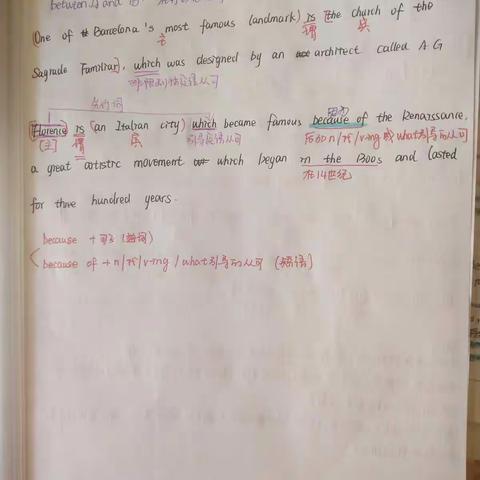 between 与 and 的
One of # Barcelona 's most famous landmark) is [the church of the
主 谓 宾
Sagrada Familiar], which was designed by an architect called A G
非限制性定语从句
先行词
[Florence] is (an Italian city) which became famous because of the Renaissance,
[主] 谓 宾 引导定语从句 后加n/代/v-ing或what引导的从句
a great artistic movement which began in the 1300s and lasted
在14世纪
for three hundred years.
because + 句子 (连词)
because of + n/代/v-ing / what引导的从句 (短语)